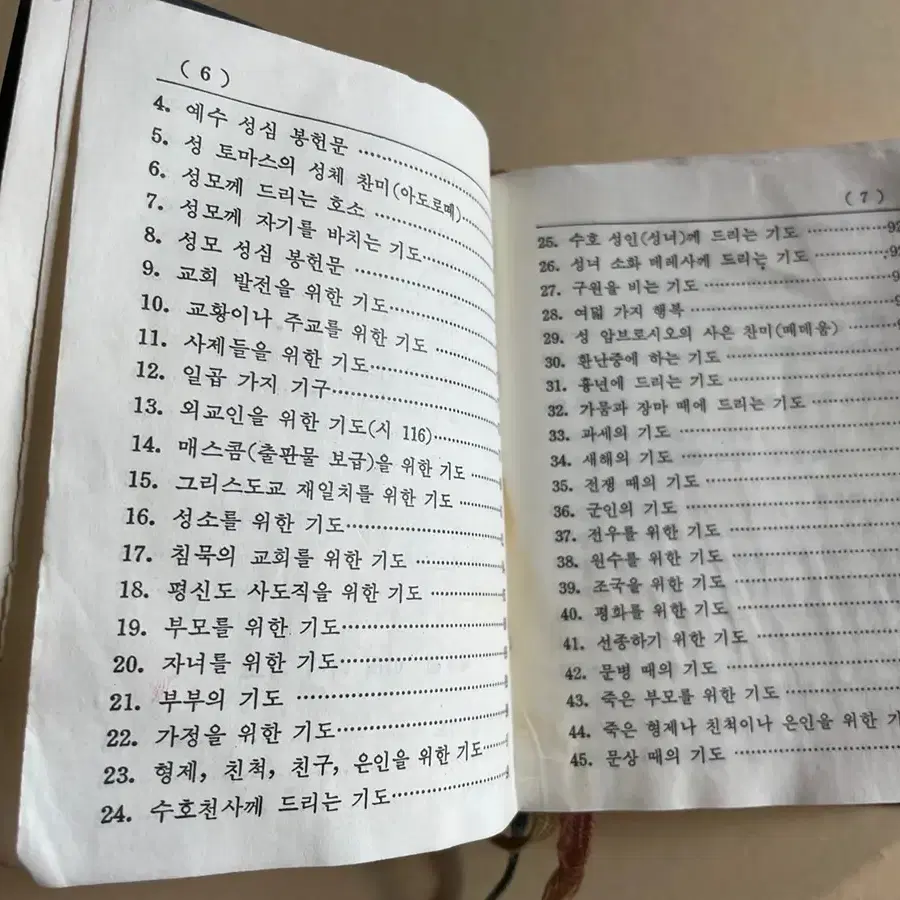 ( 6 )
4. 예수 성심 봉헌문
5. 성 토마스의 성체 찬미(아도로떼)
6. 성모께 드리는 호소
7. 성모께 자기를 바치는 기도
8. 성모 성심 봉헌문
9. 교회 발전을 위한 기도
10. 교황이나 주교를 위한 기도
11. 사제들을 위한 기도
12. 일곱 가지 기구
13. 외교인을 위한 기도(시 116)
14. 매스콤(출판물 보급)을 위한 기도
15. 그리스도교 재일치를 위한 기도
16. 성소를 위한 기도
17. 침묵의 교회를 위한 기도
18. 평신도 사도직을 위한 기도
19. 부모를 위한 기도
20. 자녀를 위한 기도
21. 부부의 기도
22. 가정을 위한 기도
23. 형제, 친척, 친구, 은인을 위한 기도
24. 수호천사께 드리는 기도
( 7 )
25. 수호 성인(성녀)께 드리는 기도
26. 성녀 소화 데레사께 드리는 기도
27. 구원을 비는 기도
28. 여덟 가지 행복
29. 성 암브로시오의 사은 찬미(떼데움)
30. 환난중에 하는 기도
31. 흉년에 드리는 기도
32. 가뭄과 장마 때에 드리는 기도
33. 과세의 기도
34. 새해의 기도
35. 전쟁 때의 기도
36. 군인의 기도
37. 전우를 위한 기도
38. 원수를 위한 기도
39. 조국을 위한 기도
40. 평화를 위한 기도
41. 선종하기 위한 기도
42. 문병 때의 기도
43. 죽은 부모를 위한 기도
44. 죽은 형제나 친척이나 은인을 위한
45. 문상 때의 기도